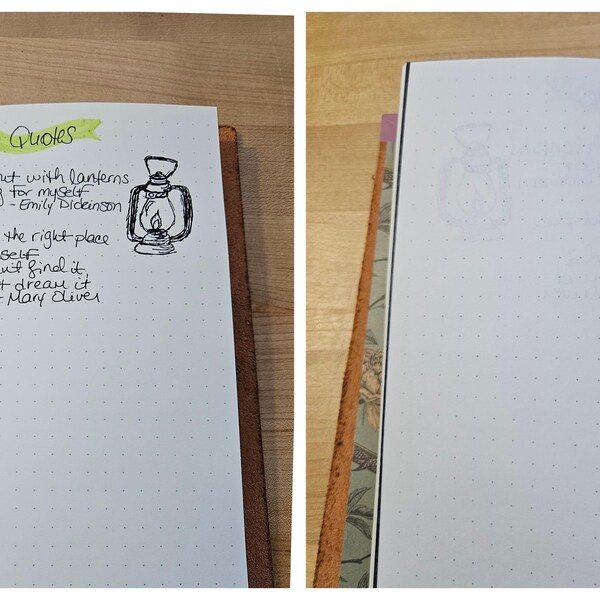 Quotes
out with lanterns
for myself
- Emily Dickinson
the right place
self
find it,
dream it
- Mary Oliver